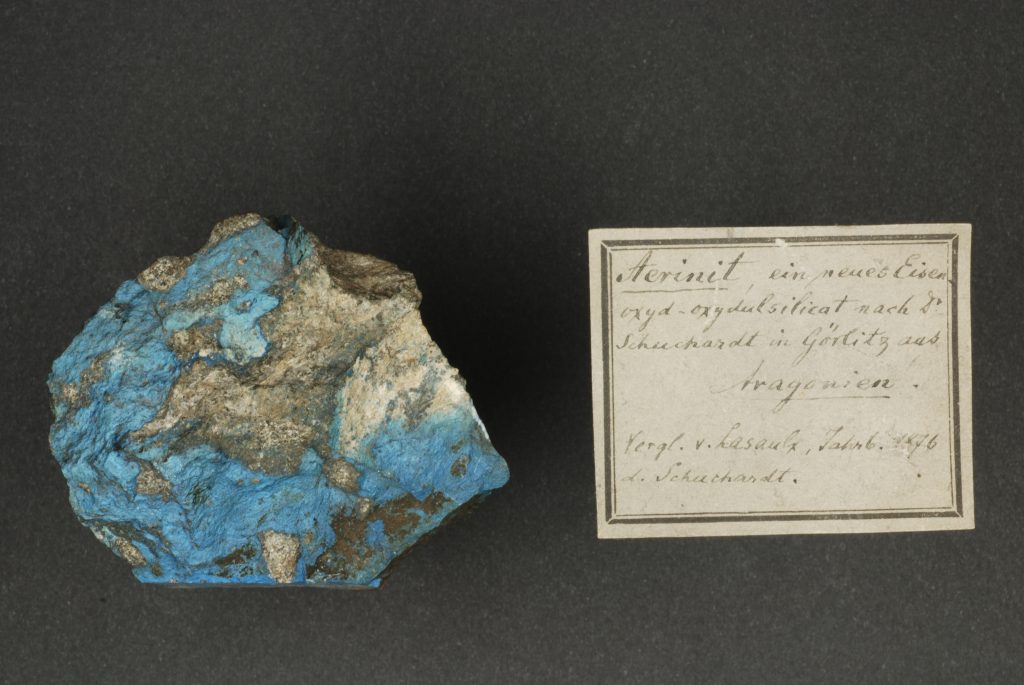 Aerinit, ein neues Eisen
oxyd-oxydulsilicat nach Dr
Schuchardt in Görlitz aus
Aragonien.
Vergl. v. Lasaulx, Jahrb. 1876
d. Schuchardt.